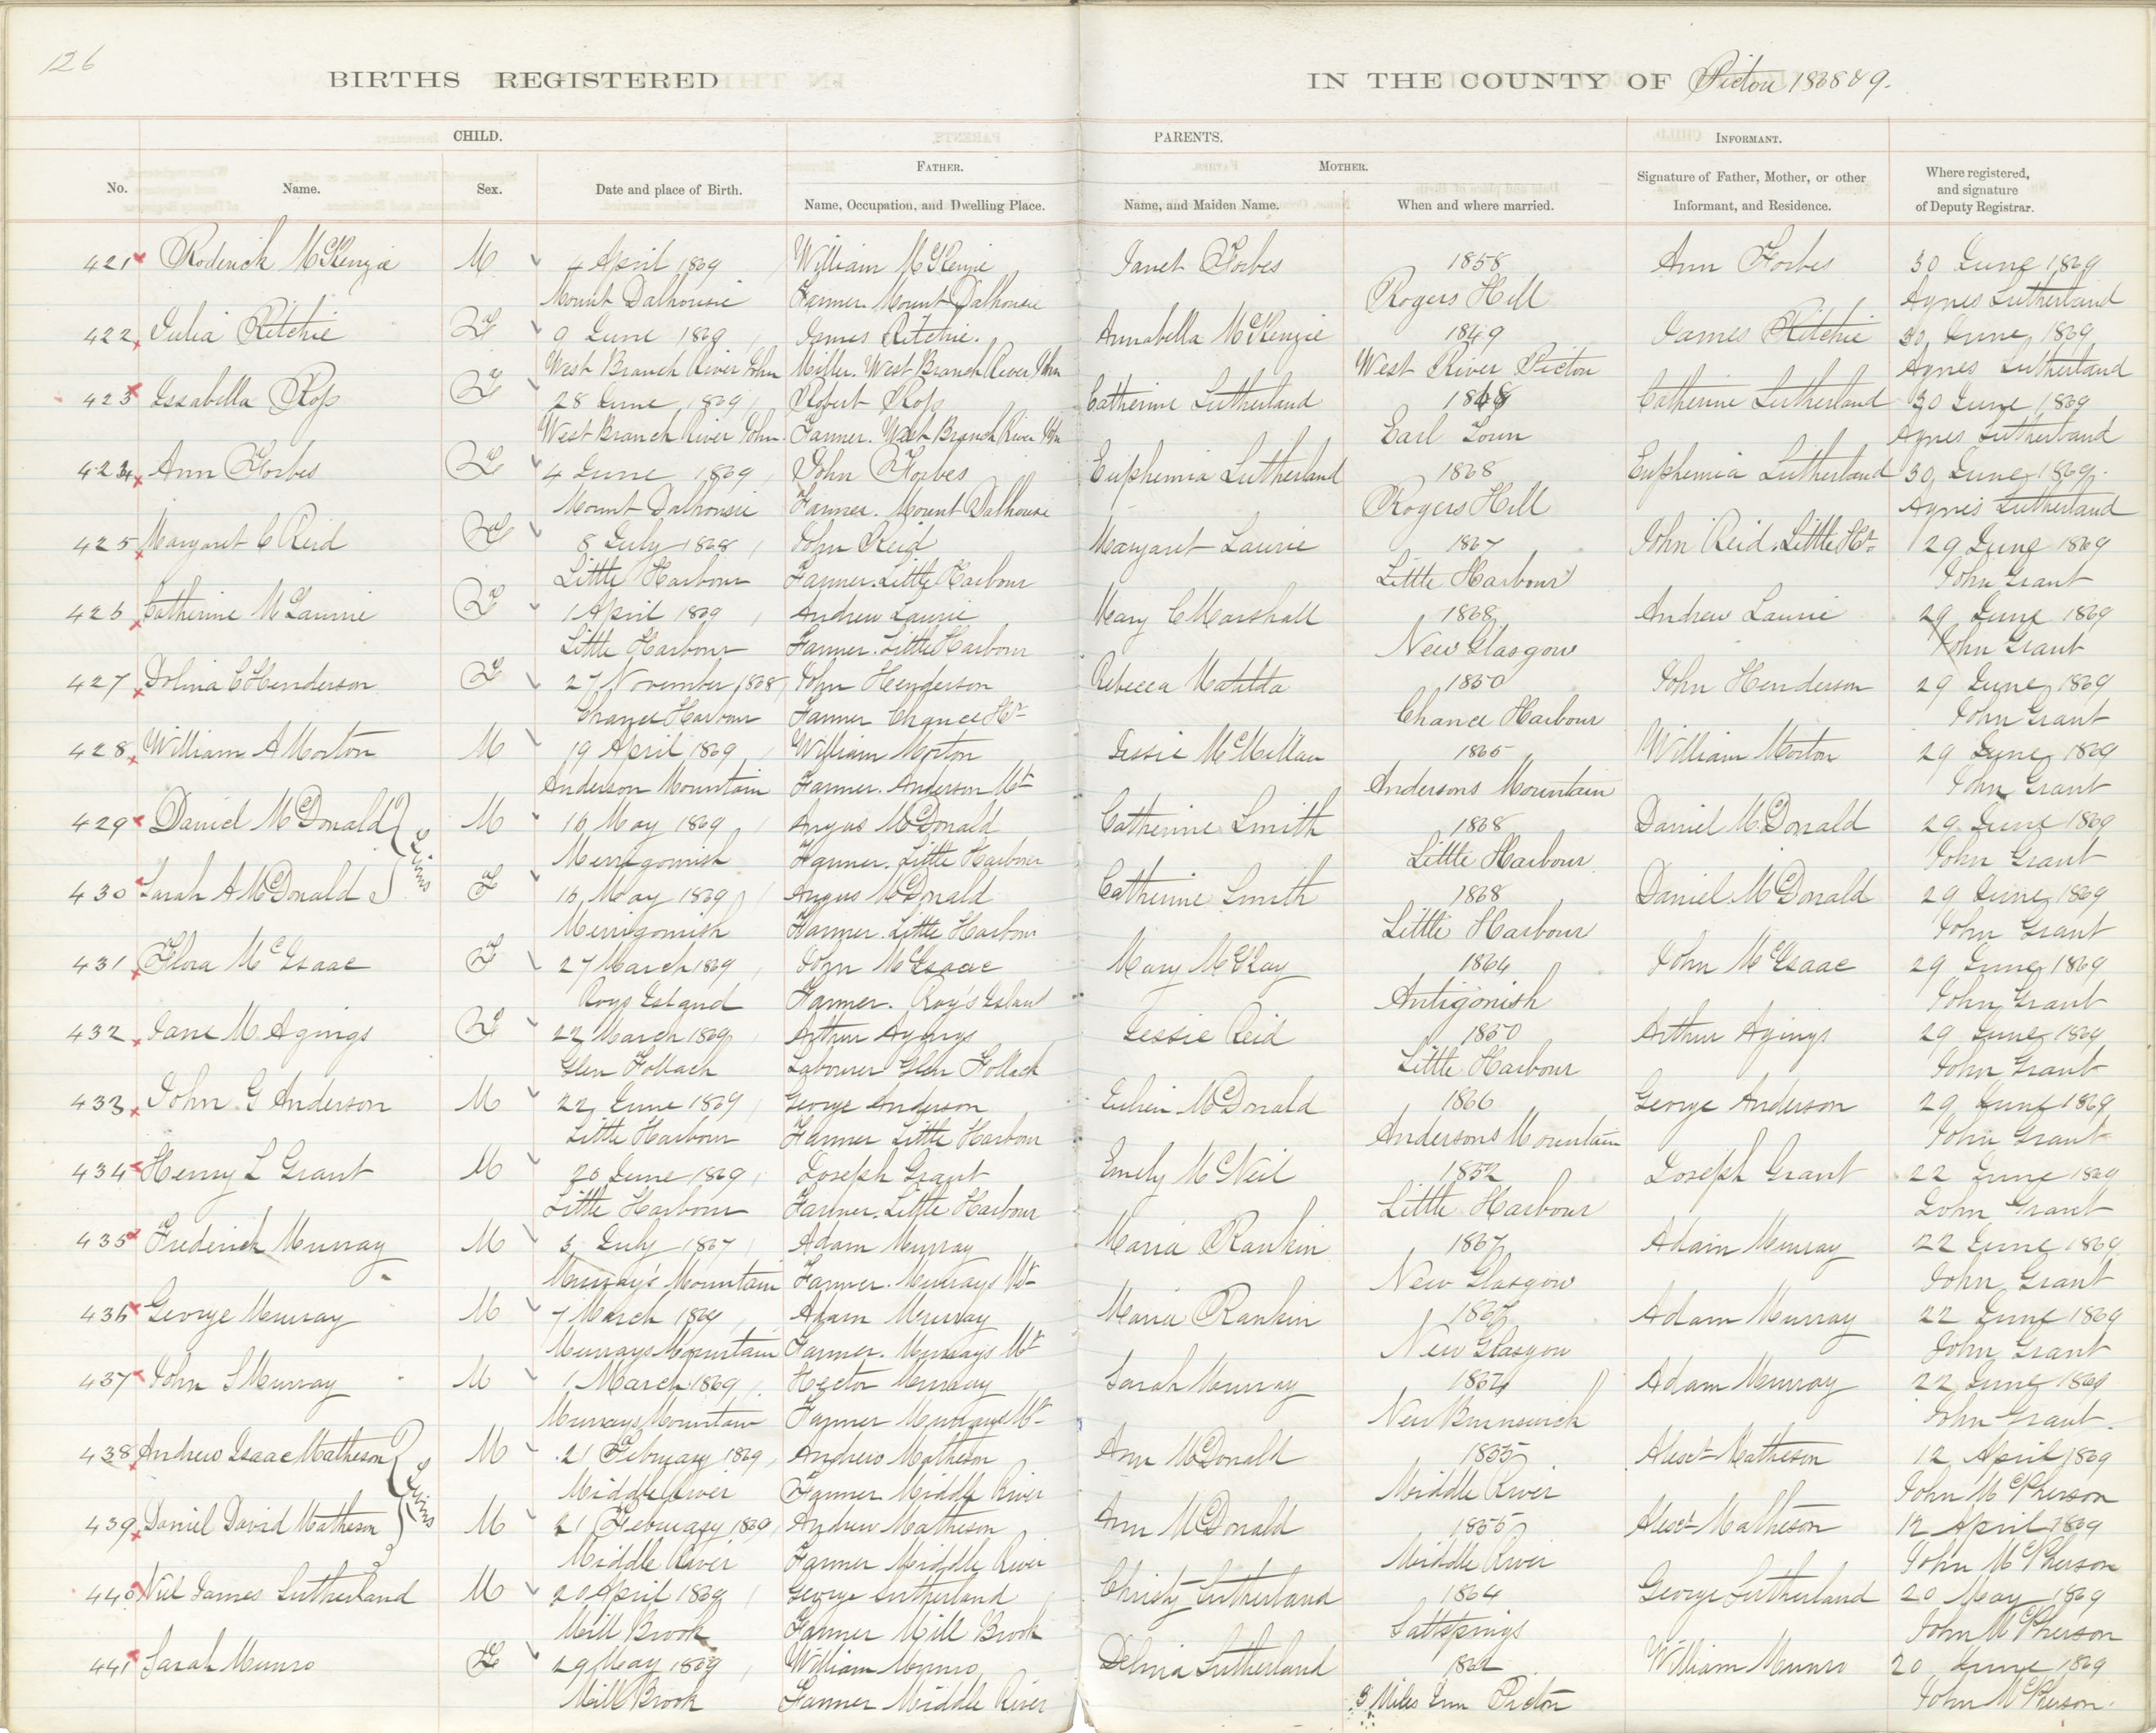 126
BIRTHS REGISTERED IN THE COUNTY OF Pictou 1868 & 9.
CHILD. PARENTS. INFORMANT.
No. Name. Sex. Date and place of Birth. FATHER. Name, Occupation, and Dwelling Place. MOTHER. Name, and Maiden Name. When and where married. Signature of Father, Mother, or other Informant, and Residence. Where registered, and signature of Deputy Registrar.
421 Roderick McKenzie M 4 April 1869 William McKenzie Janet Forbes 1858 Ann Forbes 30 June 1869
Mount Dalhousie Farmer. Mount Dalhousie Rogers Hill Agnes Sutherland
422 Julia Ritchie F 9 June 1869 James Ritchie. Annabella McKenzie 1849 James Ritchie 30 June 1869
West Branch River John Miller. West Branch River John West River Pictou Agnes Sutherland
423 Issabella Ross F 28 June 1869 Robert Ross Catherine Sutherland Catherine Sutherland 30 June 1869
West Branch River John Farmer. West Branch River John Earl Town Agnes Sutherland
424 Ann Forbes F 4 June 1869 John Forbes Euphemia Sutherland 1868 Euphemia Sutherland 30 June 1869.
Mount Dalhousie Farmer. Mount Dalhousie Rogers Hill Agnes Sutherland
425 Margaret C Reid F 8 July 1868 John Reid Margaret Laurie 1867 John Reid. Little Hr. 29 June 1869
Little Harbour Farmer. Little Harbour Little Harbour John Grant
426 Catherine McLaurie F 1 April 1869 Andrew Laurie Mary C Marshall 1868 Andrew Laurie 29 June 1869
Little Harbour Farmer. Little Harbour New Glasgow John Grant
427 Dolina C Henderson F 27 November 1868 John Henderson Rebecca Matilda 1850 John Henderson 29 June 1869
Chance Harbour Farmer Chance Hr Chance Harbour John Grant
428 William A Morton M 19 April 1869 William Morton Jessie McMillan 1865 William Morton 29 June 1869
Anderson Mountain Farmer. Anderson Mt Andersons Mountain John Grant
429 Daniel McDonald Twins M 16 May 1869 Angus McDonald Catherine Smith 1868 Daniel McDonald 29 June 1869
Merrigomish Farmer. Little Harbour Little Harbour John Grant
430 Sarah A McDonald F 16 May 1869 Angus McDonald Catherine Smith 1868 Daniel McDonald 29 June 1869
Merrigomish Farmer. Little Harbour Little Harbour John Grant
431 Flora McIsaac F 27 March 1869 John McIsaac Mary McKay 1864 John McIsaac 29 June 1869
Roys Island Farmer. Roy's Island Antigonish John Grant
432 Jane M. Agings F 22 March 1869 Arthur Agings Jessie Reid 1850 Arthur Agings 29 June 1869
Glen Follach Labourer Glen Follach Little Harbour John Grant
433 John G Anderson M 22 June 1869 George Anderson McDonald 1866 George Anderson 29 June 1869
Little Harbour Farmer Little Harbour Andersons Mountain John Grant
434 Henry L Grant M 20 June 1869 Joseph Grant Emely McNeil 1852 Joseph Grant 22 June 1869
Little Harbour Farmer. Little Harbour Little Harbour John Grant
435 Frederick Murray M 3 July 1867 Adam Murray Maria Rankin 1867 Adam Murray 22 June 1869
Murray's Mountain Farmer. Murrays Mt New Glasgow John Grant
436 George Murray M 7 March 1869 Adam Murray Maria Rankin 1867 Adam Murray 22 June 1869
Murrays Mountain Farmer. Murrays Mt New Glasgow John Grant
437 John S Murray M 1 March 1869 Hector Murray Sarah Murray Adam Murray 22 June 1869
Murrays Mountain Farmer Murrays Mt New Brunswick John Grant
438 Andrew Isaac Matheson Twins M 21 February 1869 Andrew Matheson Ann McDonald 1855 Alexr Matheson 12 April 1869
Middle River Farmer Middle River Middle River John McPherson
439 Daniel David Matheson M 21 February 1869 Andrew Matheson Ann McDonald 1855 Alexr Matheson 12 April 1869
Middle River Farmer Middle River Middle River John McPherson
440 Niel James Sutherland M 20 April 1869 George Sutherland Christy Sutherland 1864 George Sutherland 20 May 1869
Mill Brook Farmer Mill Brook Saltsprings John McPherson
441 Sarah Munro F 29 May 1869 William Munro Delina Sutherland William Munro 20 June 1869
Mill Brook Farmer Middle River Miles Inn Pictou John McPherson.